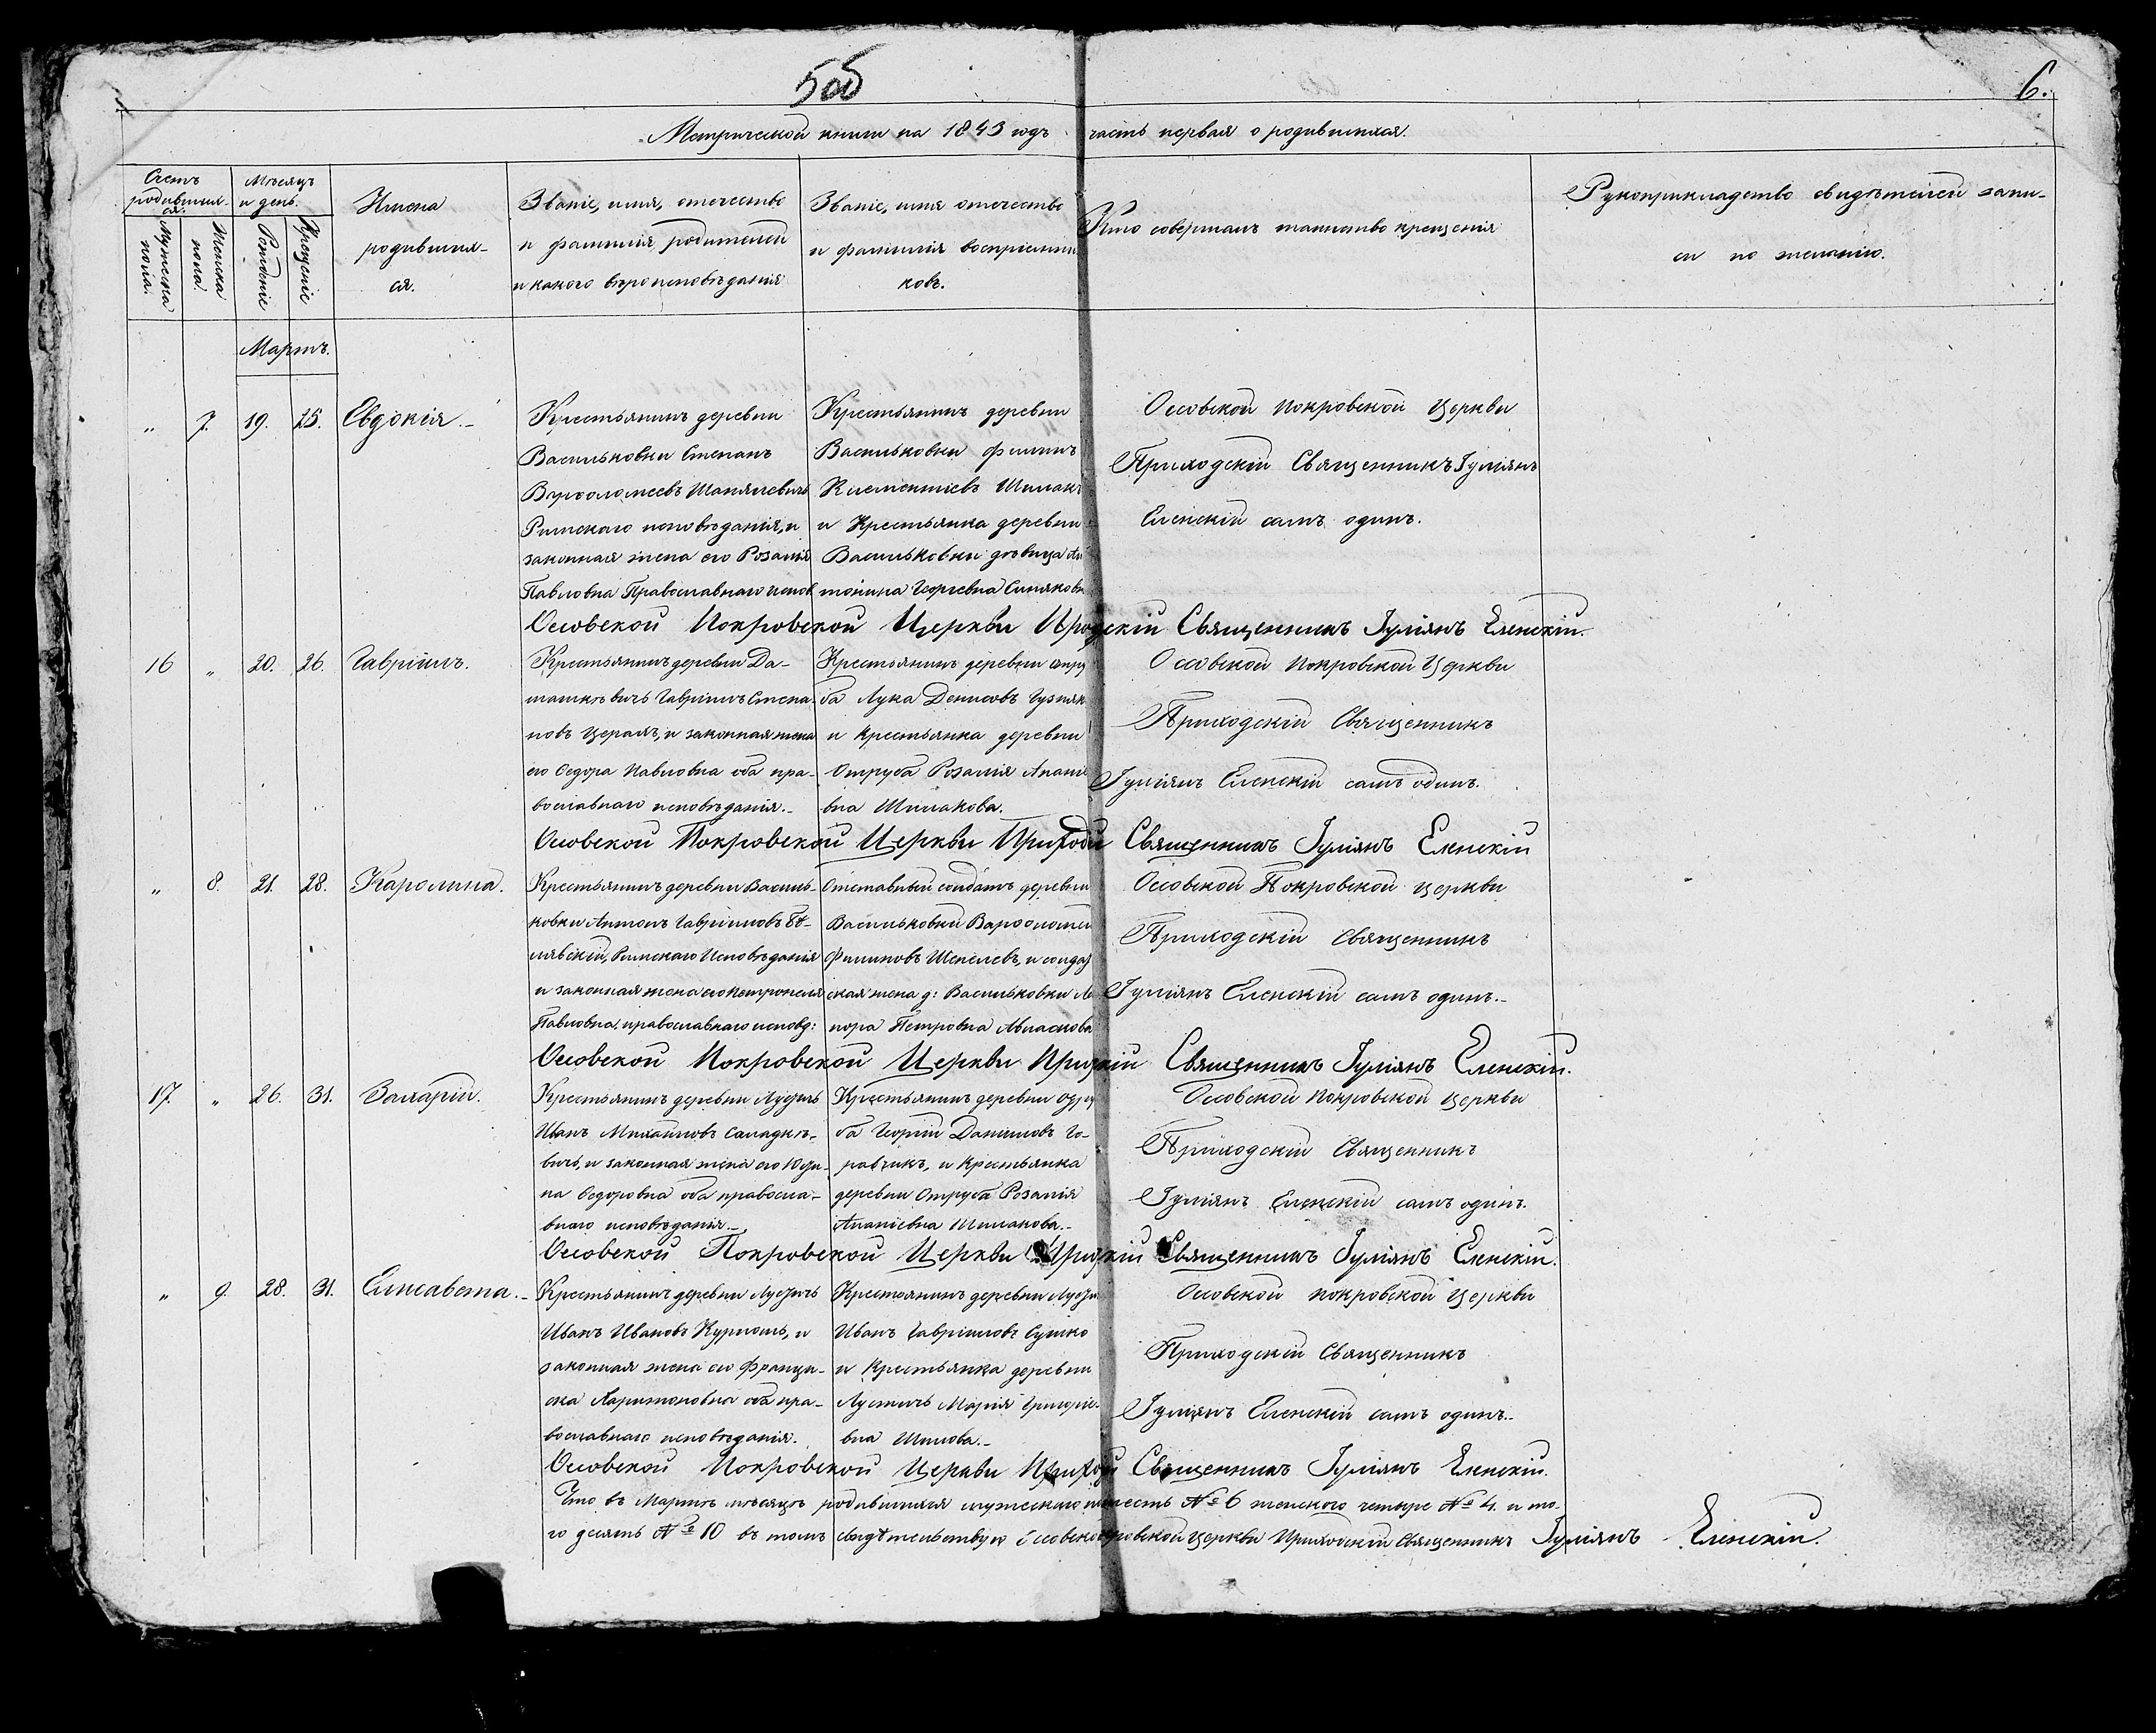 5об
6.
Метрической книги на 1843 годъ часть первая о родившихся.
Счетъ родившихся.
Мужеска пола.
Женска пола
Мѣсяцъ и день.
Рожденіе
Крещеніе
Имена
родившихся.
Званіе, имя, отечество
и фамилія родителей
и какого вѣроисповѣданія
Званіе, имя отечество
и фамилія воспріемни
ковъ.
Кто совершалъ таинство крещенія
Рукоприкладство свидѣтелей запи-
си по желанію.
Мартъ.
„ 7. 19. 25. Евдокія.
Крестьянинъ деревни
Васильковки Степанъ
Варѳоломеевъ
Римскаго исповѣданія, и
законная жена его Розалія
Павловна Православнаго испов
Крестьянинъ деревни
Васильковки Филипъ
Климентіевъ Шимак
и Крестьянка деревни
Васильковки дѣвица Ан
тонина Георгіевна
Осовской Покровской Церкви
Приходскій Священникъ Іуліянъ
Еленскій самъ одинъ.
Осовской Покровской Церкви Прихдскій Священникъ Іуліянъ Еленскій.
16 „ 20. 26. Гавріилъ.
Крестьянинъ деревни Да-
машкѣвичь Гавріилъ Степа-
новъ и законная жена
его Ѳедора Павловна оба пра-
вославнаго исповѣданія.
Крестьянинъ деревни Отру
ба Лука Денисовъ Гузняк
и крестьянка деревни
Отруба Розалія Анані
вна Шимакова.
Осовской Покровской Церкви
Приходскій Священникъ
Іуліянъ Еленскій самъ одинъ.
Осовской Покровской Церкви Приходй Священникъ Іуліянъ Еленскій
„ 8. 21. 28. Каролина.
Крестьянинъ деревни Василь-
ковки Антонъ Гавріиловъ Бѣ-
лявскій, Римскаго Исповѣданія
и законная жена его Петронеля
Павловна, православнаго исповѣд:
Отставный солдатъ деревни
Васильковки Варѳоломей
Филиповъ Шепелевъ, и солдат
ская жена д: Васильковки Ле
нора Петровна
Осовской Покровской церкви
Приходскій Священникъ
Іуліянъ Еленскій самъ одинъ.
Осовской Покровской Церкви Прихдкій Священникъ Іуліянъ Еленскій.
17. „ 26. 31. Валарій.
Крестьянинъ деревни Лустичь
Иванъ Михаиловъ Саладкѣ-
вичь, и законная жена его Юсти-
на Ѳедоровна оба правосла-
внаго исповѣданія.
Крестьянинъ деревни Отру
ба Георгій Даніиловъ Го-
равчикъ, и крестьянка
деревни Отруба Розалія
Ананіевна Шимакова.
Осовской Покровской Церкви
Приходскій Священникъ
Іуліянъ Еленскій самъ одинъ.
Осовской Покровской Церкви Прихдкій Священникъ Іуліянъ Еленскій.
„ 9. 28. 31. Елисавета.
Крестьянинъ деревни Лустичь
Иванъ Ивановъ Курпошъ, и
законная жена его Францы-
ска Харитоновна оба пра-
вославнаго исповѣданія.
Крестьянинъ деревни Лусти
Иванъ Гавріиловъ Сушко
и Крестьянка деревни
Лустичь Марія Григоріе-
вна Шилова.
Осовской Покровской Церкви
Приходскій Священникъ
Іуліянъ Еленскій самъ одинъ.
Осовской Покровской Церкви Приход Священникъ Іуліянъ Еленскій.
Что въ Мартѣ мѣсяцѣ родившихся мужескаго п шесть № 6 женского четыре № 4. и то-
го десять № 10 въ томъ свидѣтельствую Осовской Покровской Церкви Приходскій Священникъ Іуліянъ Еленскій.